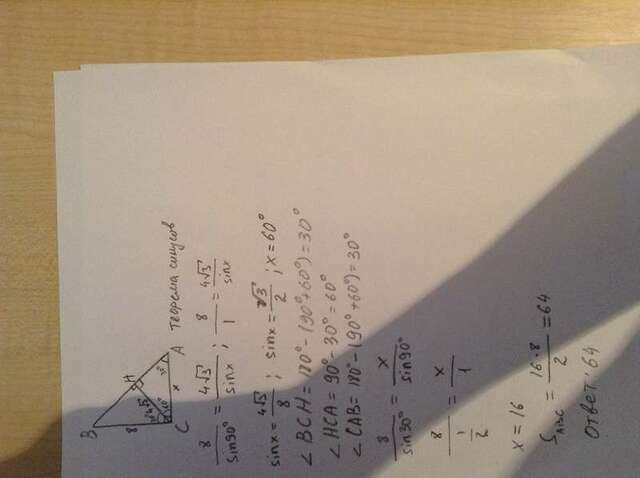 B
8
H
4√3
A
C
x
Теорема синусов
8/sin90° = 4√3/sinx ; 8/1 = 4√3/sinx
sinx = 4√3/8 ; sinx = √3/2 ; x = 60°
∠BCH = 180° - (90° + 60°) = 30°
∠HCA = 90° - 30° = 60°
∠CAB = 180° - (90° + 60°) = 30°
8/sin30° = x/sin90°
8/(1/2) = x/1
x = 16
S ABC = 16·8/2 = 64
Ответ: 64